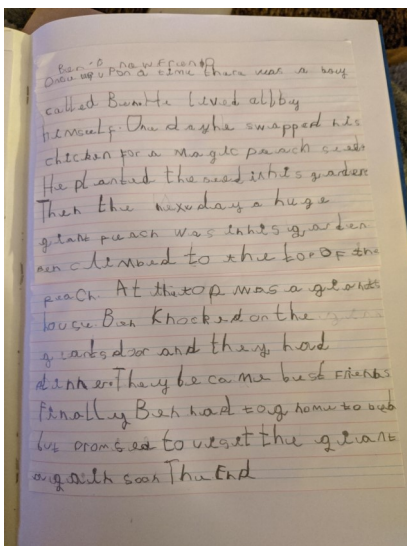 Ben-s new Friend
Once upon a time there was a boy
called Ben. He lived all by
himself. One day he swapped his
chicken for a magic peach seed
He planted the seed in his garden
Then the next day a huge
giant peach was in his garden
Ben climbed to the top of the
peach. At the top was a giants
house. Ben Knocked on the
giants door and they had
dinner. They became best Friends
Finally Ben had to go home to bed
but promised to viset the giant
again soon The End